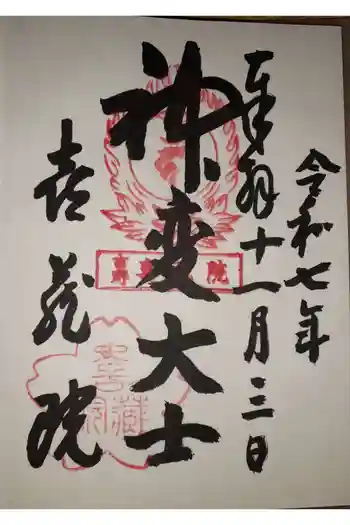 令和七年
奉拝 十一月三日
神変大士
喜蔵院
喜蔵院